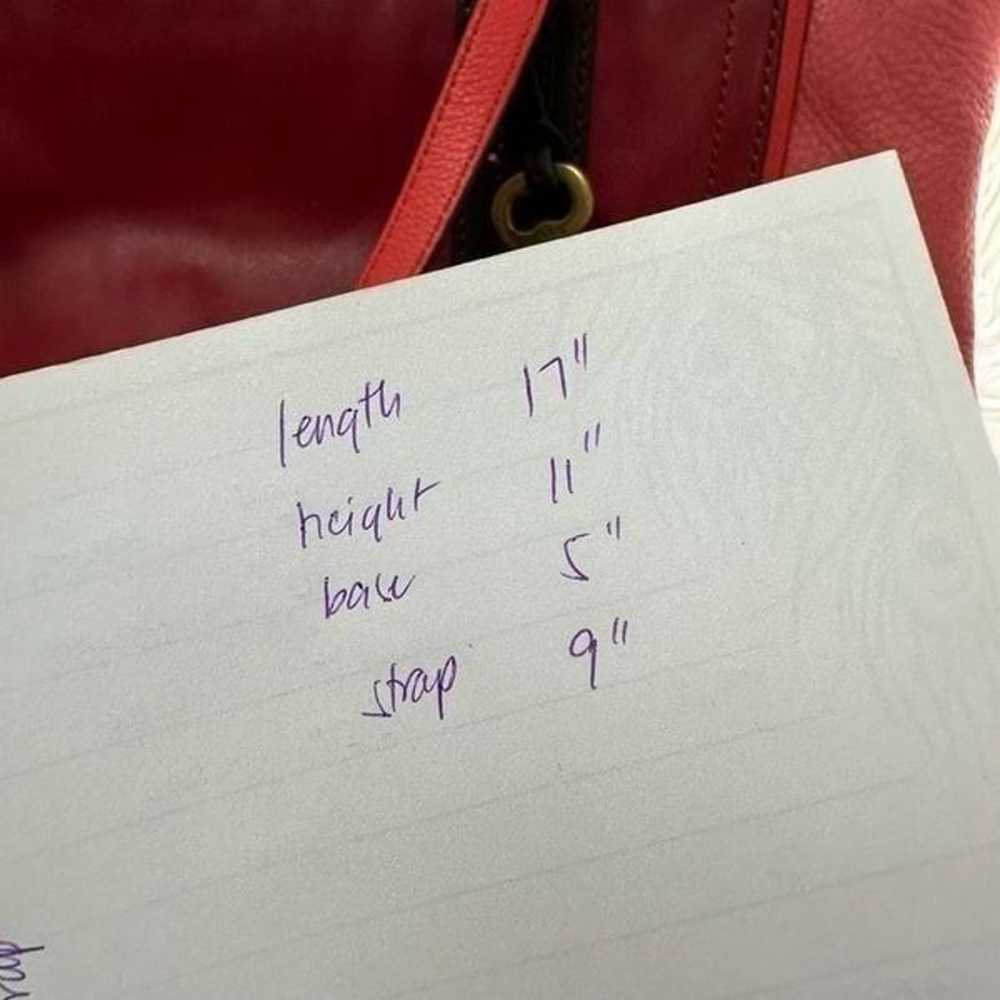 length 17"
height 11"
base 5"
strap 9"